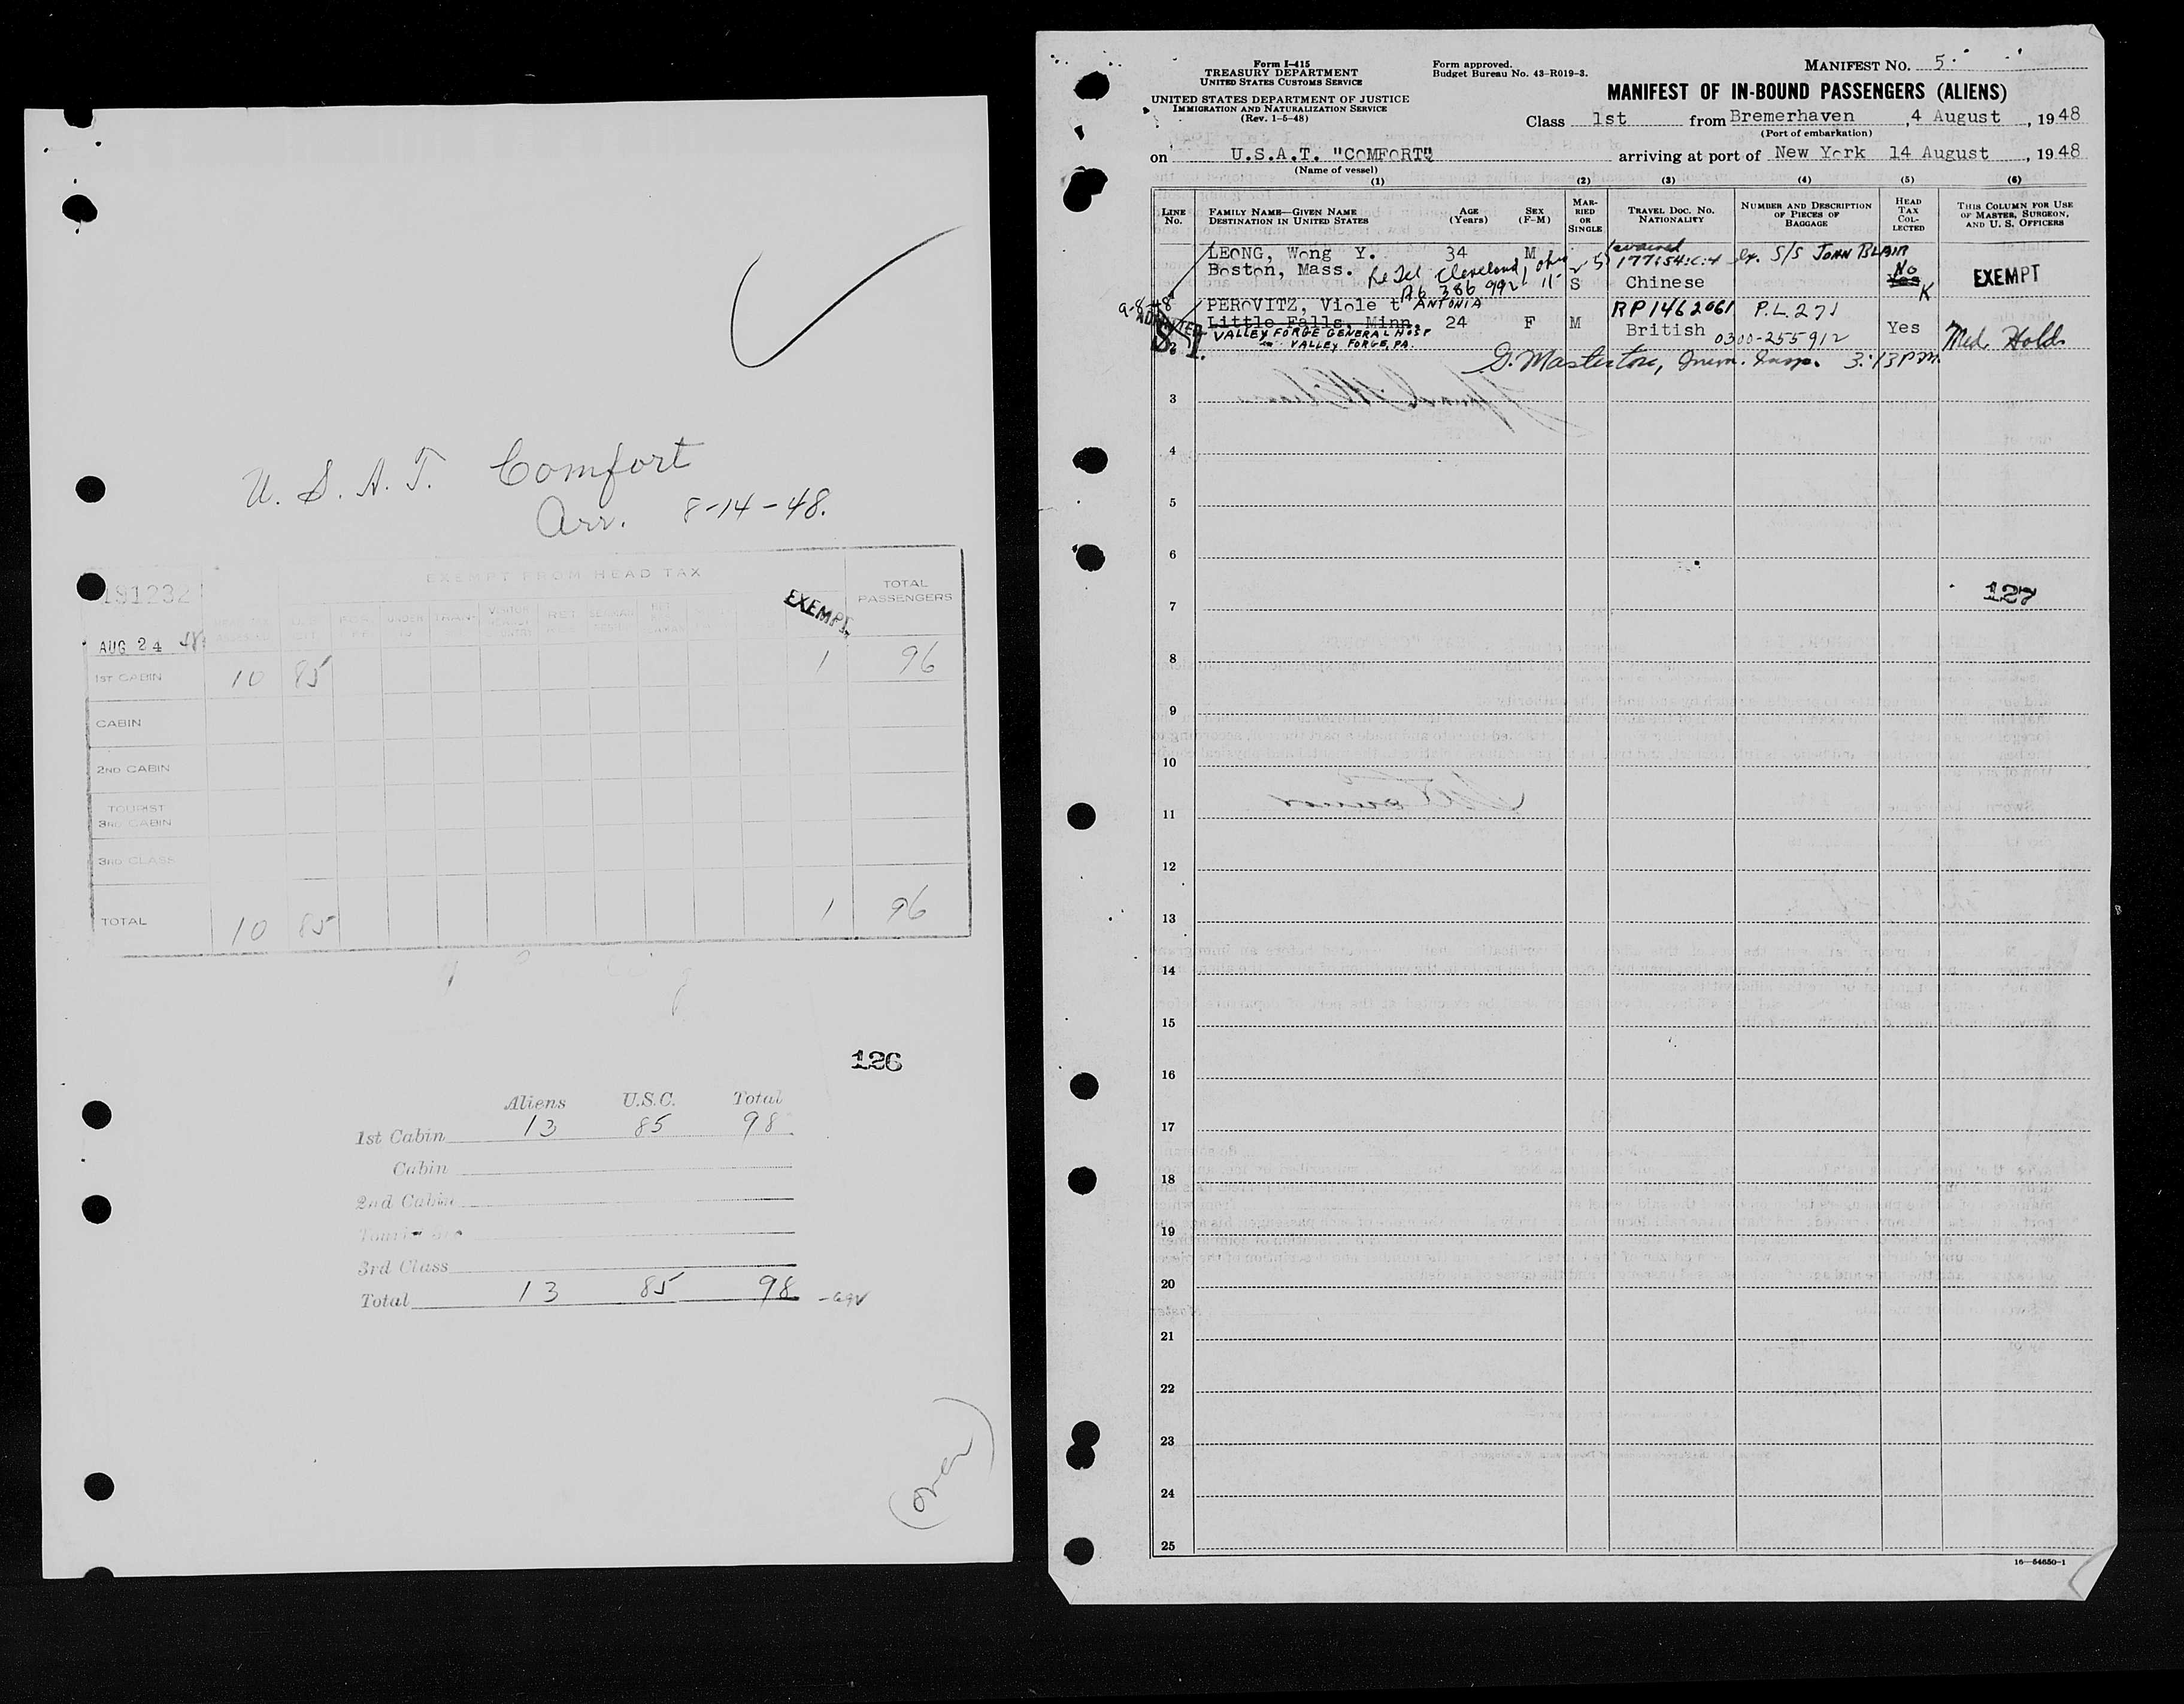 U. S. A. T. Comfort
Arr. 8-14-48.
191232
EXEMPT FROM HEAD TAX
EXEMPT
TOTAL PASSENGERS
UNDER
TRAN-
AUG 24 48
1ST CABIN 10 85 1 96
CABIN
2ND CABIN
TOURIST
3RD CABIN
3RD CLASS
TOTAL 10 85 1 96
126
Aliens U.S.C. Total
1st Cabin 13 85 98
Cabin
2nd Cabin
3rd Class
Total 13 85 98
(over)
Form I-415
TREASURY DEPARTMENT
UNITED STATES CUSTOMS SERVICE
UNITED STATES DEPARTMENT OF JUSTICE
IMMIGRATION AND NATURALIZATION SERVICE
(Rev. 1-5-48)
Form approved.
Budget Bureau No. 43-R019-3.
MANIFEST NO. 5.
MANIFEST OF IN-BOUND PASSENGERS (ALIENS)
Class 1st from Bremerhaven, 4 August, 1948
(Port of embarkation)
on U.S.A.T. "COMFORT" arriving at port of New York 14 August, 1948
(Name of vessel)
(1) (2) (3) (4) (5) (6)
LINE No.
FAMILY NAME—GIVEN NAME
DESTINATION IN UNITED STATES
AGE (Years)
SEX (F-M)
MARRIED OR SINGLE
TRAVEL DOC. NO.
NATIONALITY
NUMBER AND DESCRIPTION OF PIECES OF BAGGAGE
HEAD TAX COLLECTED
THIS COLUMN FOR USE OF MASTER, SURGEON, AND U. S. OFFICERS
LEONG, Wong Y. 34 M S/S JOHN BLAIR
Boston, Mass. Cleveland, Ohio
S Chinese No Yes K EXEMPT
9-8-48
ADMITTED
PEROVITZ, Violet ANTONIA RP1462061 P.L. 271
Little Falls, Minn. 24 F M British 0300-255912 Yes Med. Hold
VALLEY FORGE GENERAL HOSP
VALLEY FORGE, PA.
G. Masterton, Imm. Insp. 3:13 PM
3
4
5
6
7
127
8
9
10
11
12
13
14
15
16
17
18
19
20
21
22
23
24
25
16—54650-1